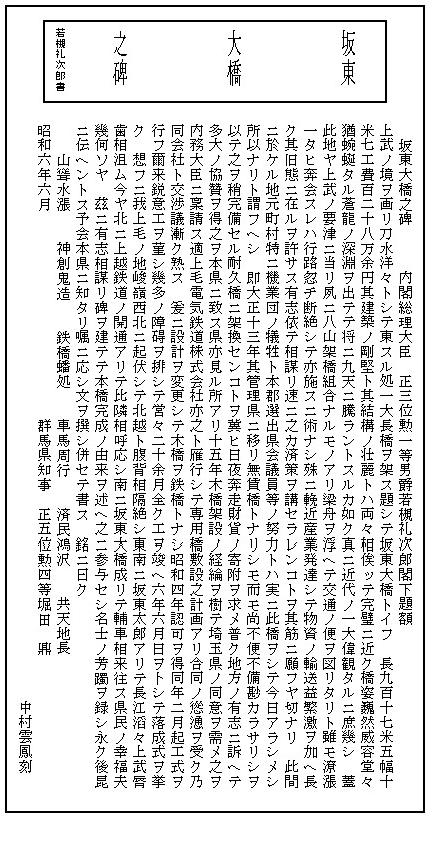 坂東
大橋
之碑
若槻礼次郎書
坂東大橋之碑　内閣総理大臣　正三位勲一等男爵若槻礼次郎閣下題額
上武ノ境ヲ画リ刀水洋々トシテ東スル処一大長橋ヲ架ス題シテ坂東大橋トイフ　長九百十七米五幅十
米七工費百二十八万余円其建築ノ剛堅ト其結構ノ壮麗トハ両々相俟ッテ完璧ニ近ク橋姿巍然威容堂々
猶蜿蜒タル蒼龍ノ深淵ヲ出テテ将ニ九天ニ騰ラントスルカ如ク真ニ近代ノ一大偉観タルニ庶幾シ　蓋
此地ヤ上武ノ要津ニ当リ夙ニ八山架橋組合ナルモノアリ梁舟ヲ浮ヘテ交通ノ便ヲ図リタリト雖モ潦漲
一タヒ奔会スレハ行路忽チ断絶シテ亦施スニ術ナシ殊ニ輓近産業発達シテ物資ノ輸送益繁激ヲ加ヘ長
ク其旧態ニ在ルヲ許サス有志依テ相謀リ速ニ之カ済策ヲ講セラレンコトヲ其筋ニ願フヤ切ナリ　此間
ニ於ケル地元町村特ニ機業団ノ犠牲ト本郡選出県会議員等ノ努力トハ実ニ此橋ヲシテ今日アラシメシ
所以ナリト謂フヘシ　即大正十三年其管理県ニ移リ無賃橋トナリシモ而モ尚不便不備尠カラサリシヲ
以テ之ヲ稍完備セル耐久橋ニ架換センコトヲ冀ヒ日夜奔走財貨ノ寄附ヲ求メ普ク地方ノ有志ニ訴ヘテ
多大ノ協賛ヲ得之ヲ本県ニ致ス県亦見ル所アリ十五年木橋架設ノ経綸ヲ樹テ埼玉県ノ同意ヲ需メ之ヲ
内務大臣ニ稟請ス適上毛電気鉄道株式会社亦之ト雁行シテ専用橋敷設之計画アリ合同ノ慫慂ヲ受ク乃
同会社ト交渉議漸ク熟ス　爰ニ設計ヲ変更シテ木橋ヲ鉄橋トナシ昭和四年認可ヲ得同年二月起工式ヲ
行フ爾来鋭意工ヲ菫シ幾多ノ障碍ヲ排シテ営々二十余月全クエヲ竣ヘ六年六月日ヲトシテ落成式ヲ挙
ク　想フニ我上毛ノ地峻嶺西北ニ起伏シテ北越ト腹背相隔絶シ東南ニ坂東太郎アリテ長江滔々上武脣
歯相沮ム今ヤ北ニ上越鉄道ノ開通アリテ比隣相呼応シ南ニ坂東大橋成リテ輔車相来往ス県民ノ幸福夫
幾何ソヤ　茲ニ有志相謀リ碑ヲ建テテ本橋完成ノ由来ヲ述ヘ之ニ参与セシ名士ノ芳躅ヲ録シ永ク後昆
ニ伝ヘントス予会本県ニ知タリ嘱ニ応シ文ヲ撰シ併セテ書ス　銘ニ曰ク
山聳水漲　神創鬼造　鉄橋蟠処　車馬周行　済民鴻沢　共天地長
昭和六年六月　群馬県知事　正五位勲四等堀田　鼎
中村雲鳳刻